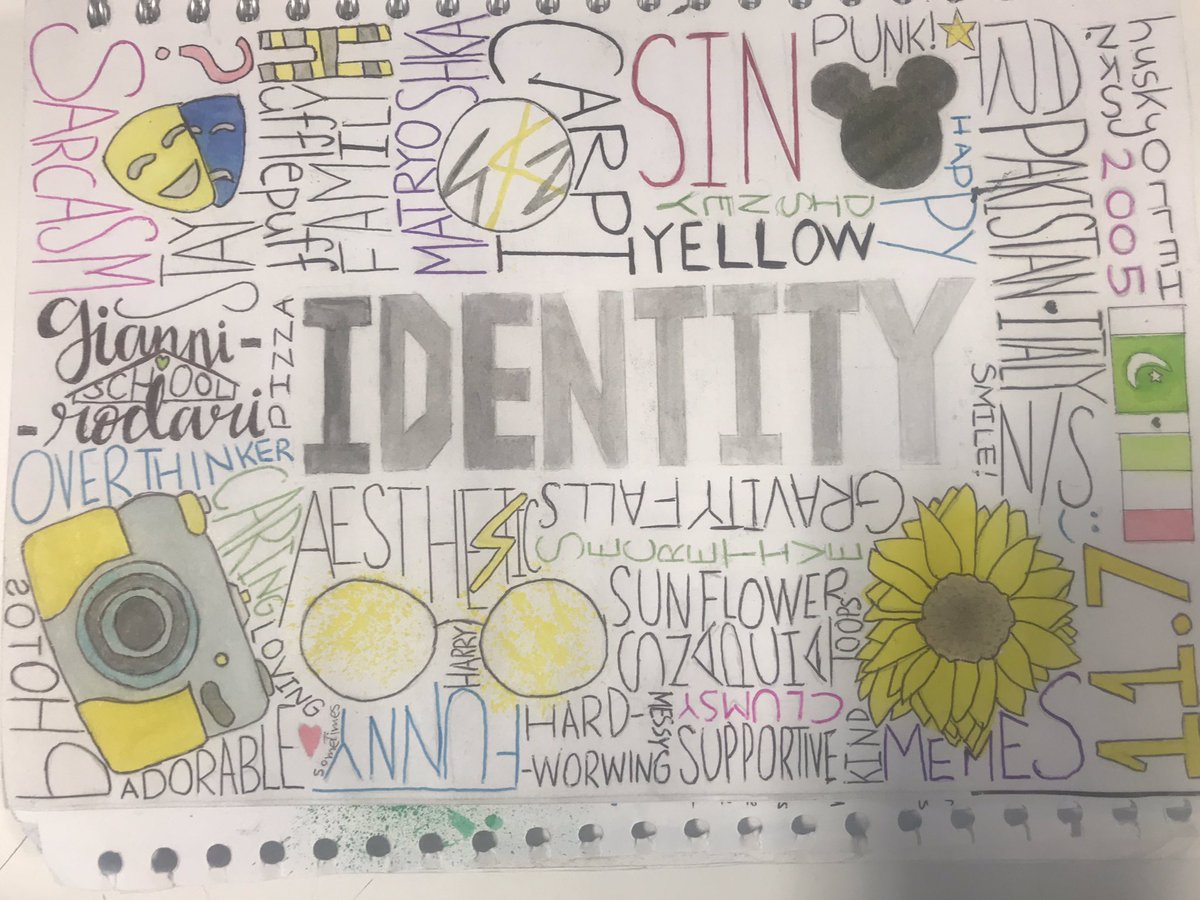 SARCASM
?
H
Hufflepuff
FAMILY
MATRYOSHKA
CARPI
SIN
PUNK!
HAPPY
DISNEY
YELLOW
ART
PAKISTAN • ITALY
husky or rmI
2005
gianni-
SCHOOL
-rodari
PIZZA
IDENTITY
SMILE!
N/S
:)
OVERTHINKER
CARING
LOVING
AESTHETIC
GRAVITY FALLS
SECRETIVE
SUNFLOWER
OOPS
HARRY
PHOTOS
ADORABLE
sometimes
FUNNY
HARD-
-WORWING
MESSY
CLUMSY
SUPPORTIVE
KIND
MEMES
11.7